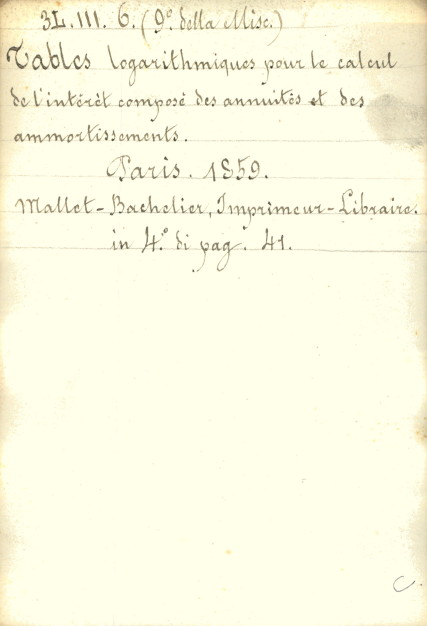 3L.III. 6. (9º della Misc.)
Tables logarithmiques pour le calcul
de l'intérêt composé des annuités et des
ammortissements.
Paris. 1859.
Mallet-Bachelier, Imprimeur-Libraire.
in 4.º di pag. 41.
C.